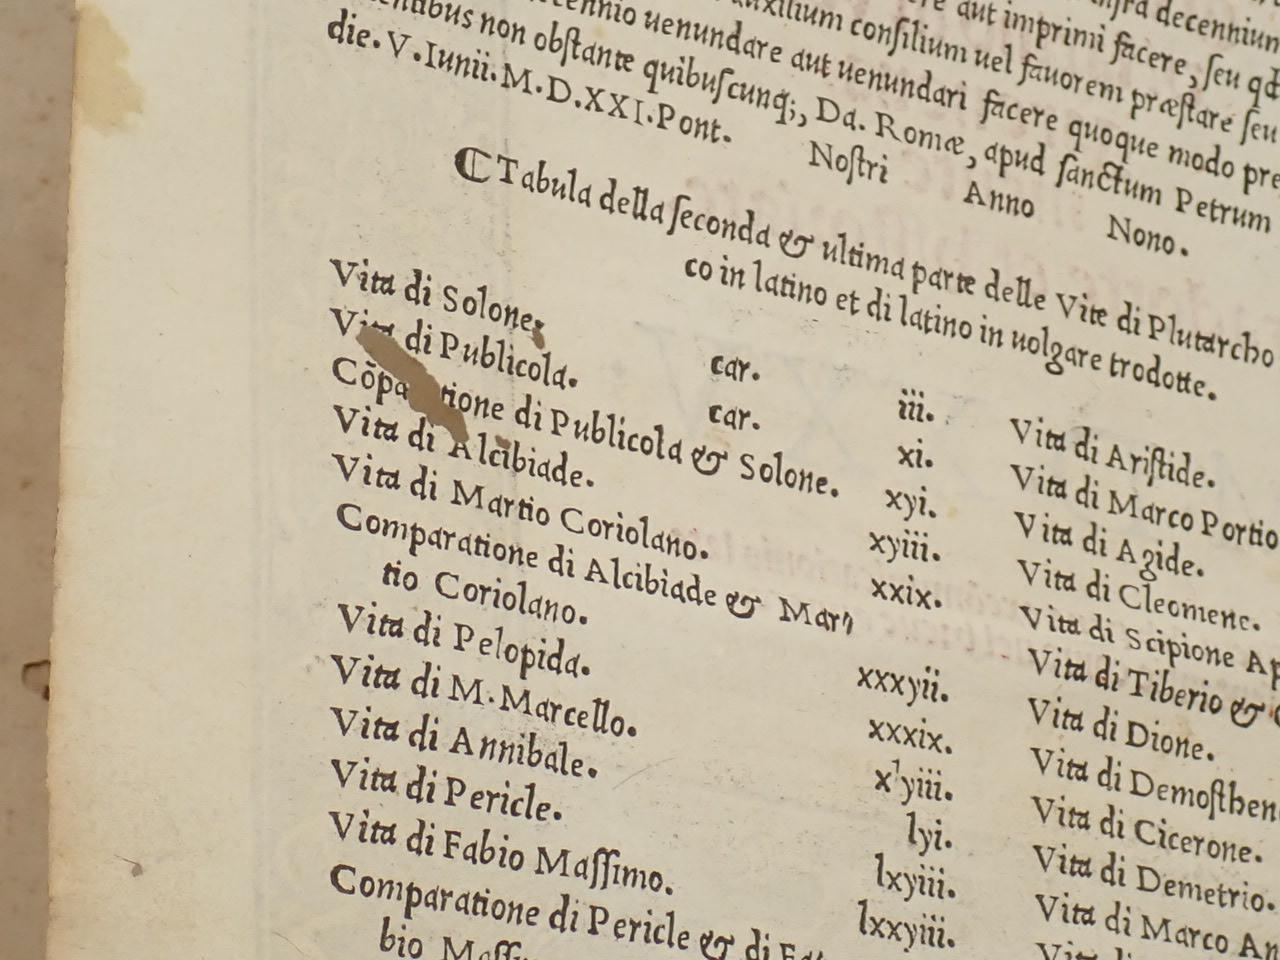 infra decennium
aut imprimi facere, seu qd
decennio uenundare aut uenundari facere quoque modo pre
auxilium consilium uel fauorem præstare seu
non obstante quibuscunq;, Da. Romæ, apud sanctum Petrum
die. V. Iunii. M. D. XXI. Pont. Nostri Anno Nono.
ℂTabula della seconda & ultima parte delle Vite di Plutarcho
co in latino et di latino in uolgare trodotte.
Vita di Solone. car. iii.
Vita di Publicola. car. xi.
Cõpa tione di Publicola & Solone. xyi.
Vita di Alcibiade. xyiii.
Vita di Martio Coriolano. xxix.
Comparatione di Alcibiade & Mar
tio Coriolano. xxxyii.
Vita di Pelopida. xxxix.
Vita di M. Marcello. xlyiii.
Vita di Annibale. lyi.
Vita di Pericle. lxyiii.
Vita di Fabio Massimo. lxxyiii.
Comparatione di Pericle & di Fa
bio Massi
Vita di Aristide.
Vita di Marco Portio
Vita di Agide.
Vita di Cleomene.
Vita di Scipione Ap
Vita di Tiberio &
Vita di Dione.
Vita di Demosthen
Vita di Cicerone.
Vita di Demetrio.
Vita di Marco An
Vita di